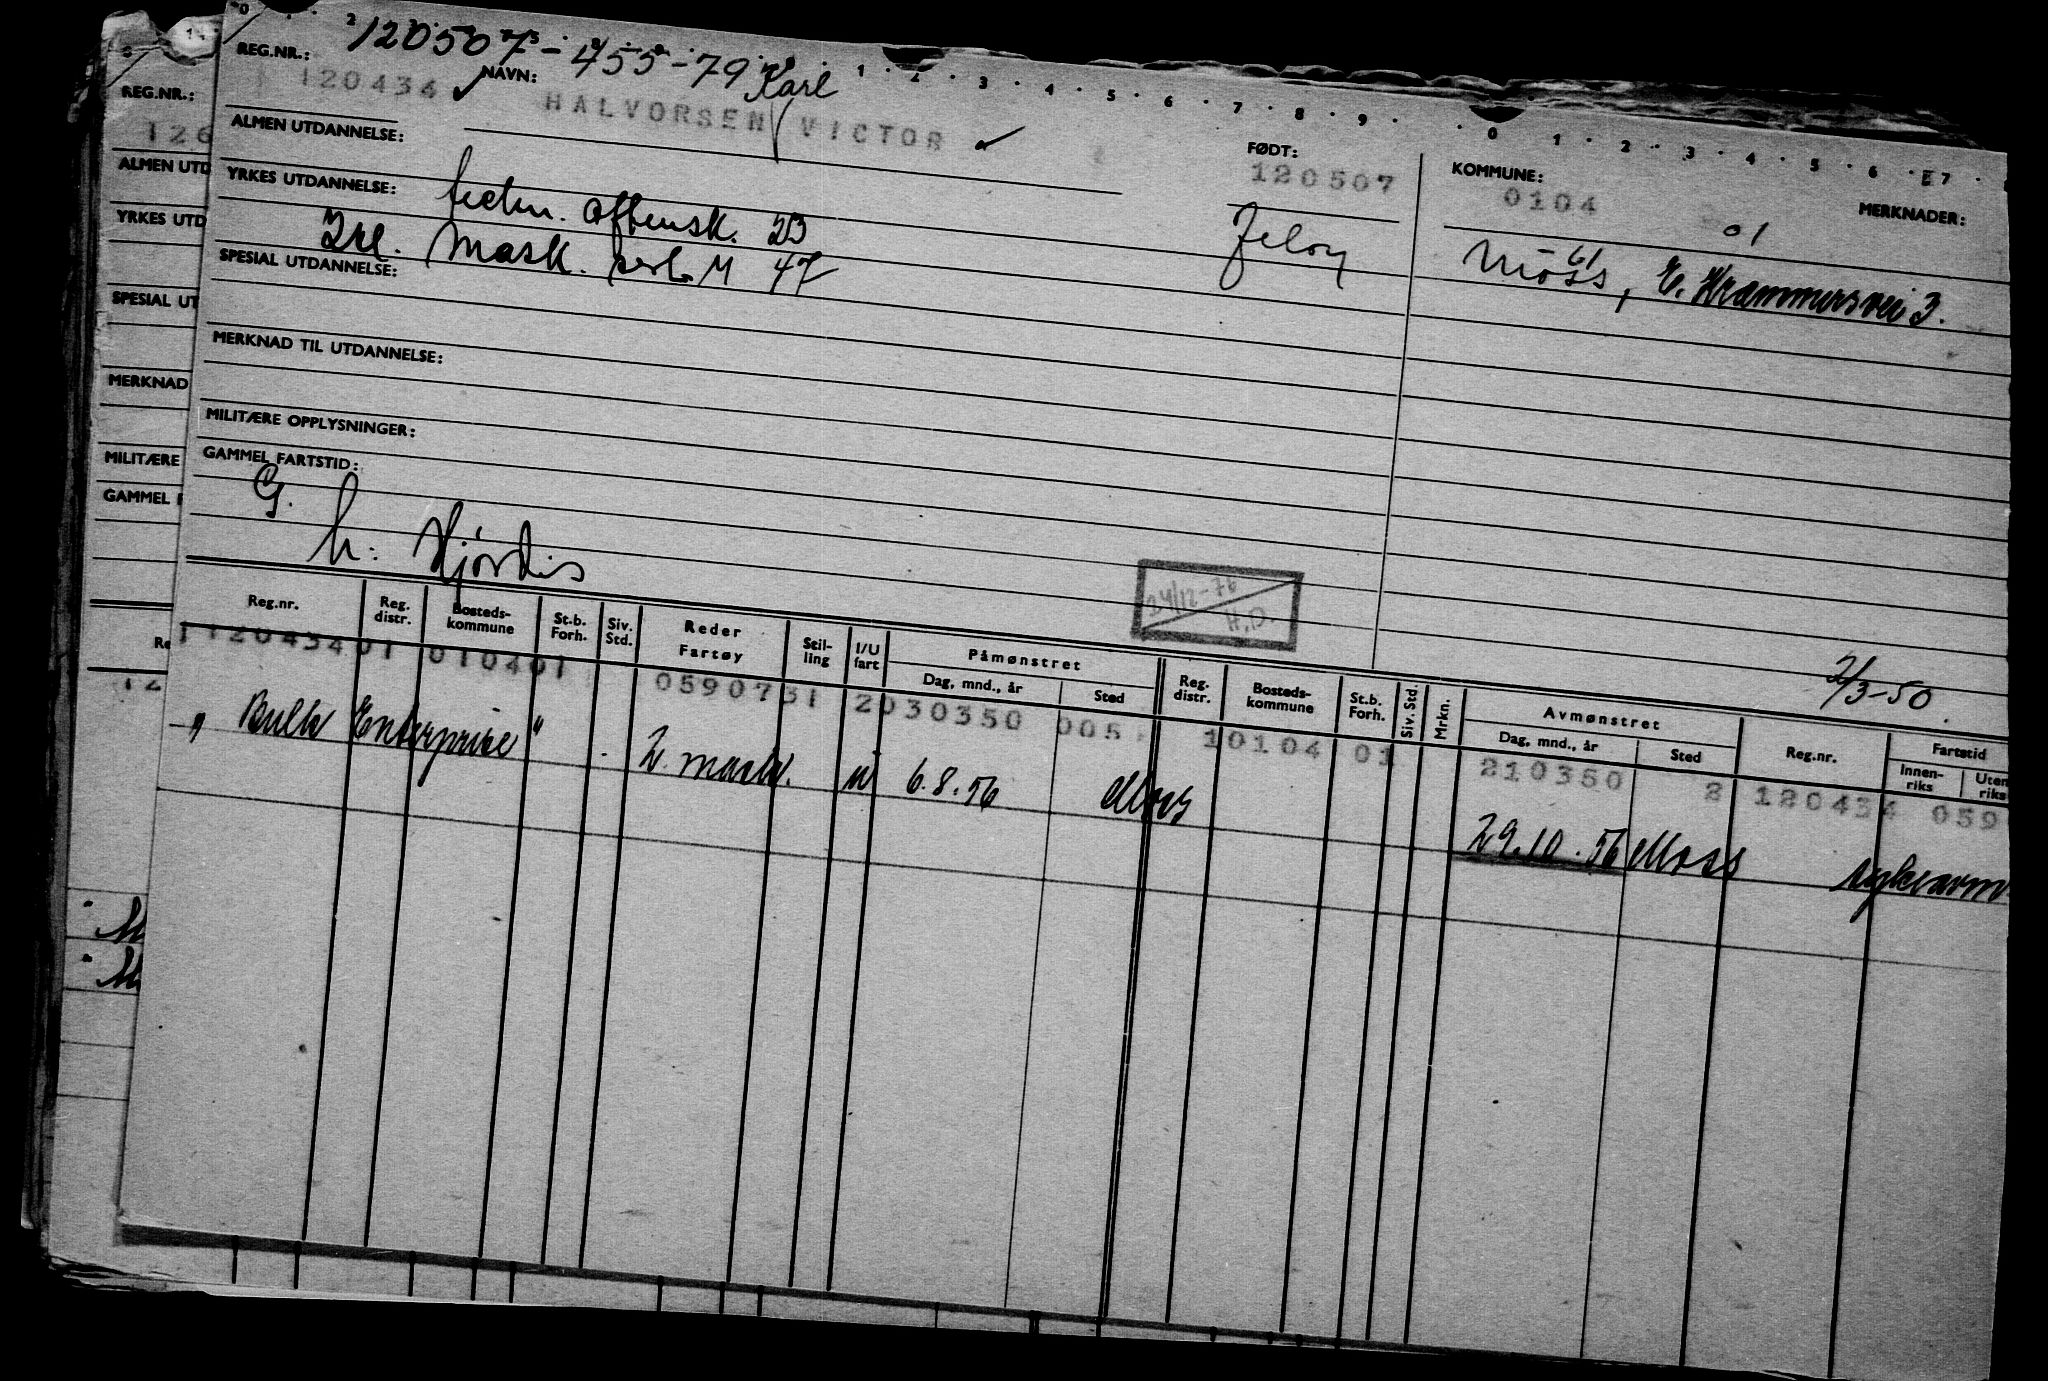 0 2 1 2 3 4 5 6 7 8 9 0 1 2 3 4 5 6 7
120507-455-79
REG.NR.: NAVN: Karl
120434 HALVORSEN/VICTOR
FØDT: 120507
KOMMUNE: 0104
MERKNADER:
ALMEN UTDANNELSE:
YRKES UTDANNELSE: techn. aftensk. 23
2kl. Mask. sert. M 47
Jeløy
01
61
Moss, E. Krammersvei 3.
SPESIAL UTDANNELSE:
MERKNAD TIL UTDANNELSE:
MILITÆRE OPPLYSNINGER:
GAMMEL FARTSTID:
G.
h: Hjørdis
24/12-76
H.O.
2/3-50.
Reg.nr. Reg. distr. Bosteds-kommune St.b. Forh. Siv. Std. Reder Fartøy Stil-ling I/U fart Påmønstret Dag, mnd., år Sted Reg. distr. Bosteds-kommune St.b. Forh. Siv. Std. Mrkn. Avmønstret Dag, mnd., år Sted Reg.nr. Fartstid Innen-riks Uten riks
112043401 010401 0590731 2030350 005 10104 01 210350 2 120434 059
"Bulk Enterprise" 2. mask. u 6.8.56 Moss 29.10.56 Moss
REG.NR.:
126
ALMEN UTD
YRKES UTD
SPESIAL UT
MERKNAD
MILITÆRE
GAMMEL
Re
12